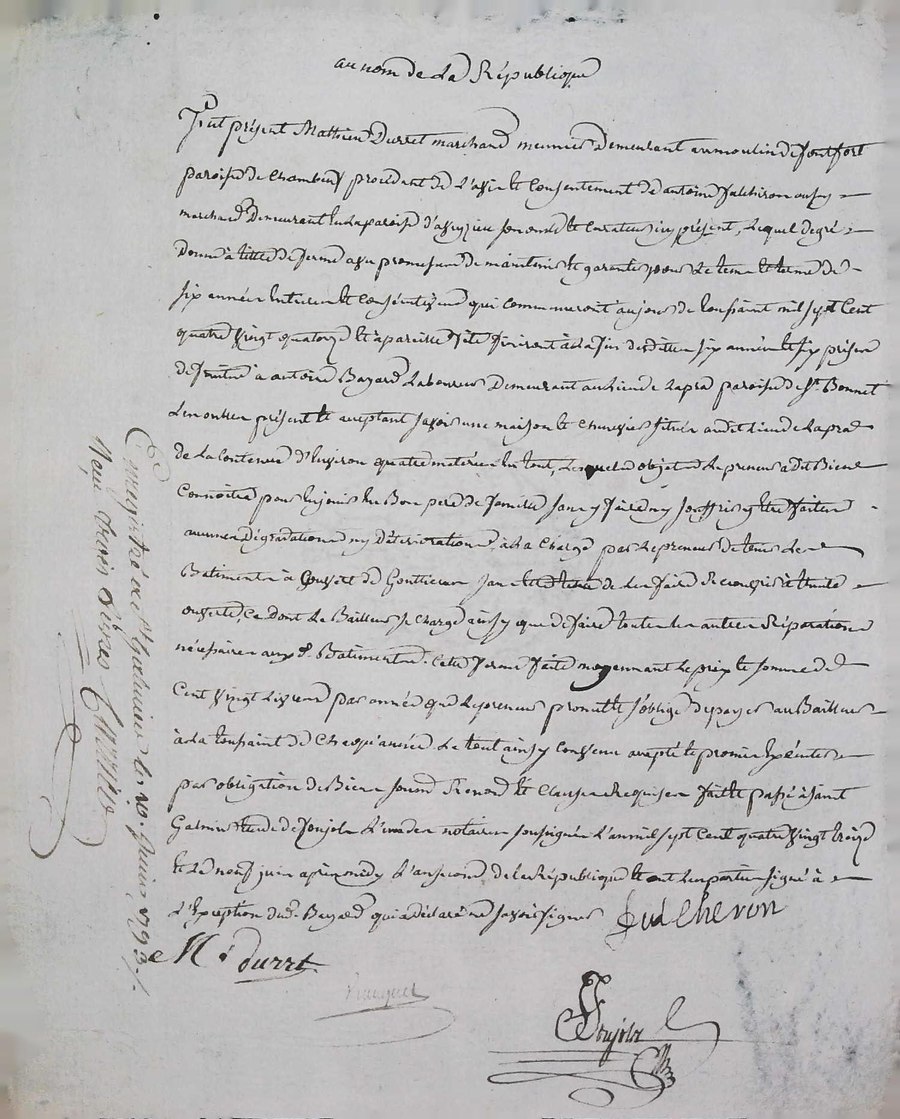 au nom de la République
Fut présent Mathieu Durret marchand meunier Demeurant au moulin de fontfort
paroisse de Chambeuf procédant de l'avis et Consentement de antoine falchiron aussy
marchand Demeurant en la paroisse d'aveyzieu son oncle et Curateur icy présent, Lequel de gré
Donne à titre de ferme avec promesse de maintenir et garantir pour Le tems et terme de
six années entieres et Consécutives qui commenceront au jour de toussaint mil sept Cent
quatre vingt quatorze et à pareille fête finiront à la fin desdittes six années et six prises
de fruits à antoine Bayard Laboureur Demeurant au lieu de Lapra paroisse de St. Bonnet
Les oulles présent et acceptant savoir une maison et Chenevier située audit Lieu de Lapra
de la Contenue d'environ quatre meterées en tout, Lesquels objets Le preneur a dit Bien
Connoître pour en jouir en Bon pere de famille sans y faire ny souffrir y être faites
aucunes Dégradations ny Détériorations, à La Charge par Le preneur de tenir Les
Batiments à Couvert de Gouttieres sans être tenu de les faire Recouvrir à tuile
ouverte, Ce dont Le Bailleur se charge ainsy que de faire toutes les autres Réparations
nécessaires aux d. Batiments. Cette ferme faite moyennant Le prix et somme de
Cent vingt Livres par année que Le preneur promet et s'oblige de payer au Bailleur
à la toussaint de Chaque année Le tout ainsy Convenu accepté et promis Exécuter
par obligation de Biens soumis Renoncé et Clauses Requises fait et passé à saint
Galmier Etude de Poujola L'un des notaires soussignés L'an mil sept Cent quatre vingt treize
et Le neuf juin après midy L'an second de la République et ont Les parties signé à
L'Exception dud. Bayard qui a déclaré ne savoir signer
falcheron
M. durret
Poujola
Enregistré à St. Galmier le 10. juin 1793.
Reçu trois Livres